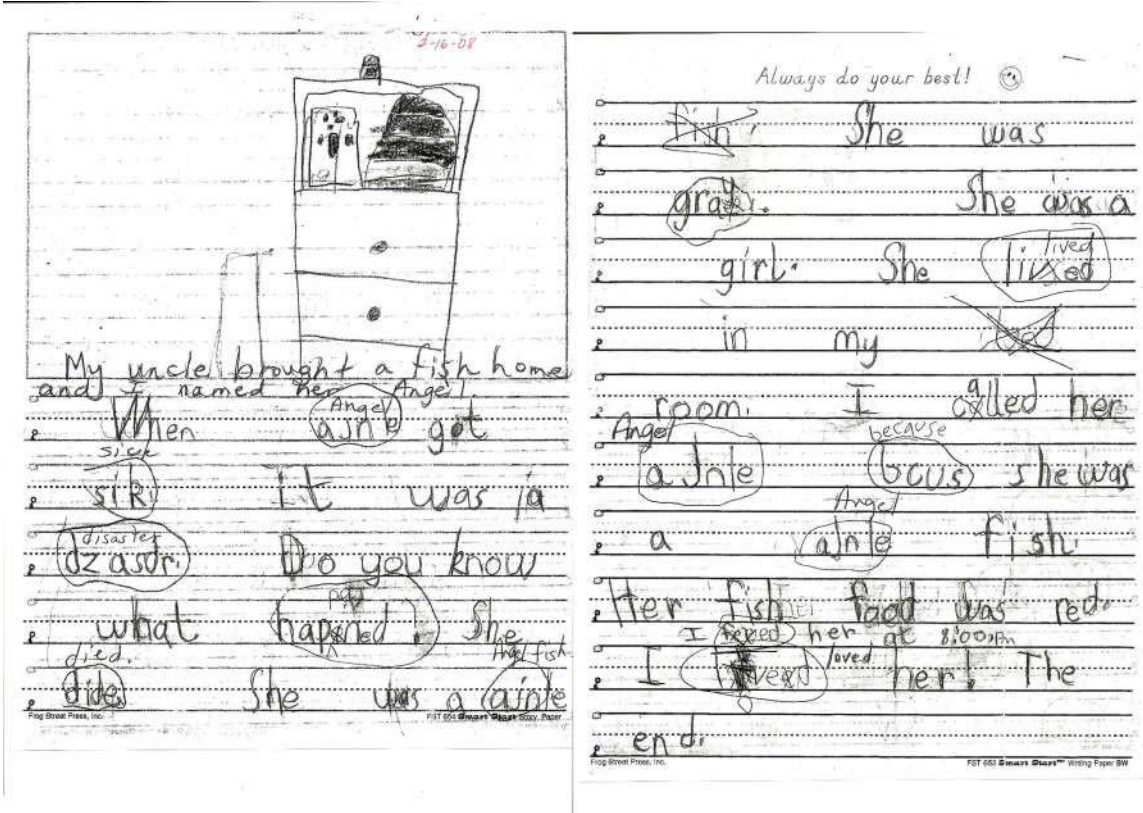 2-16-08
My uncle brought a fish home
and I named her Angel.
Angel
When ajnle got
sick
sik. It was a
disaster
dzasdr. Do you know
what hapned. She
died. Angel fish
dide. She was a ajnle
Frog Street Press, Inc. FST 654 Smart Start Story Paper
Always do your best!
fish. She was
gray. She was a
lived
girl. She lived
in my bed
room. I called her
Angel because
aJnle bcus she was
Angel
a ajnle fish.
Her fish food was red.
I her at 8:00 pm
loved
I her! The
end.
Frog Street Press, Inc. FST 663 Smart Start™ Writing Paper BW